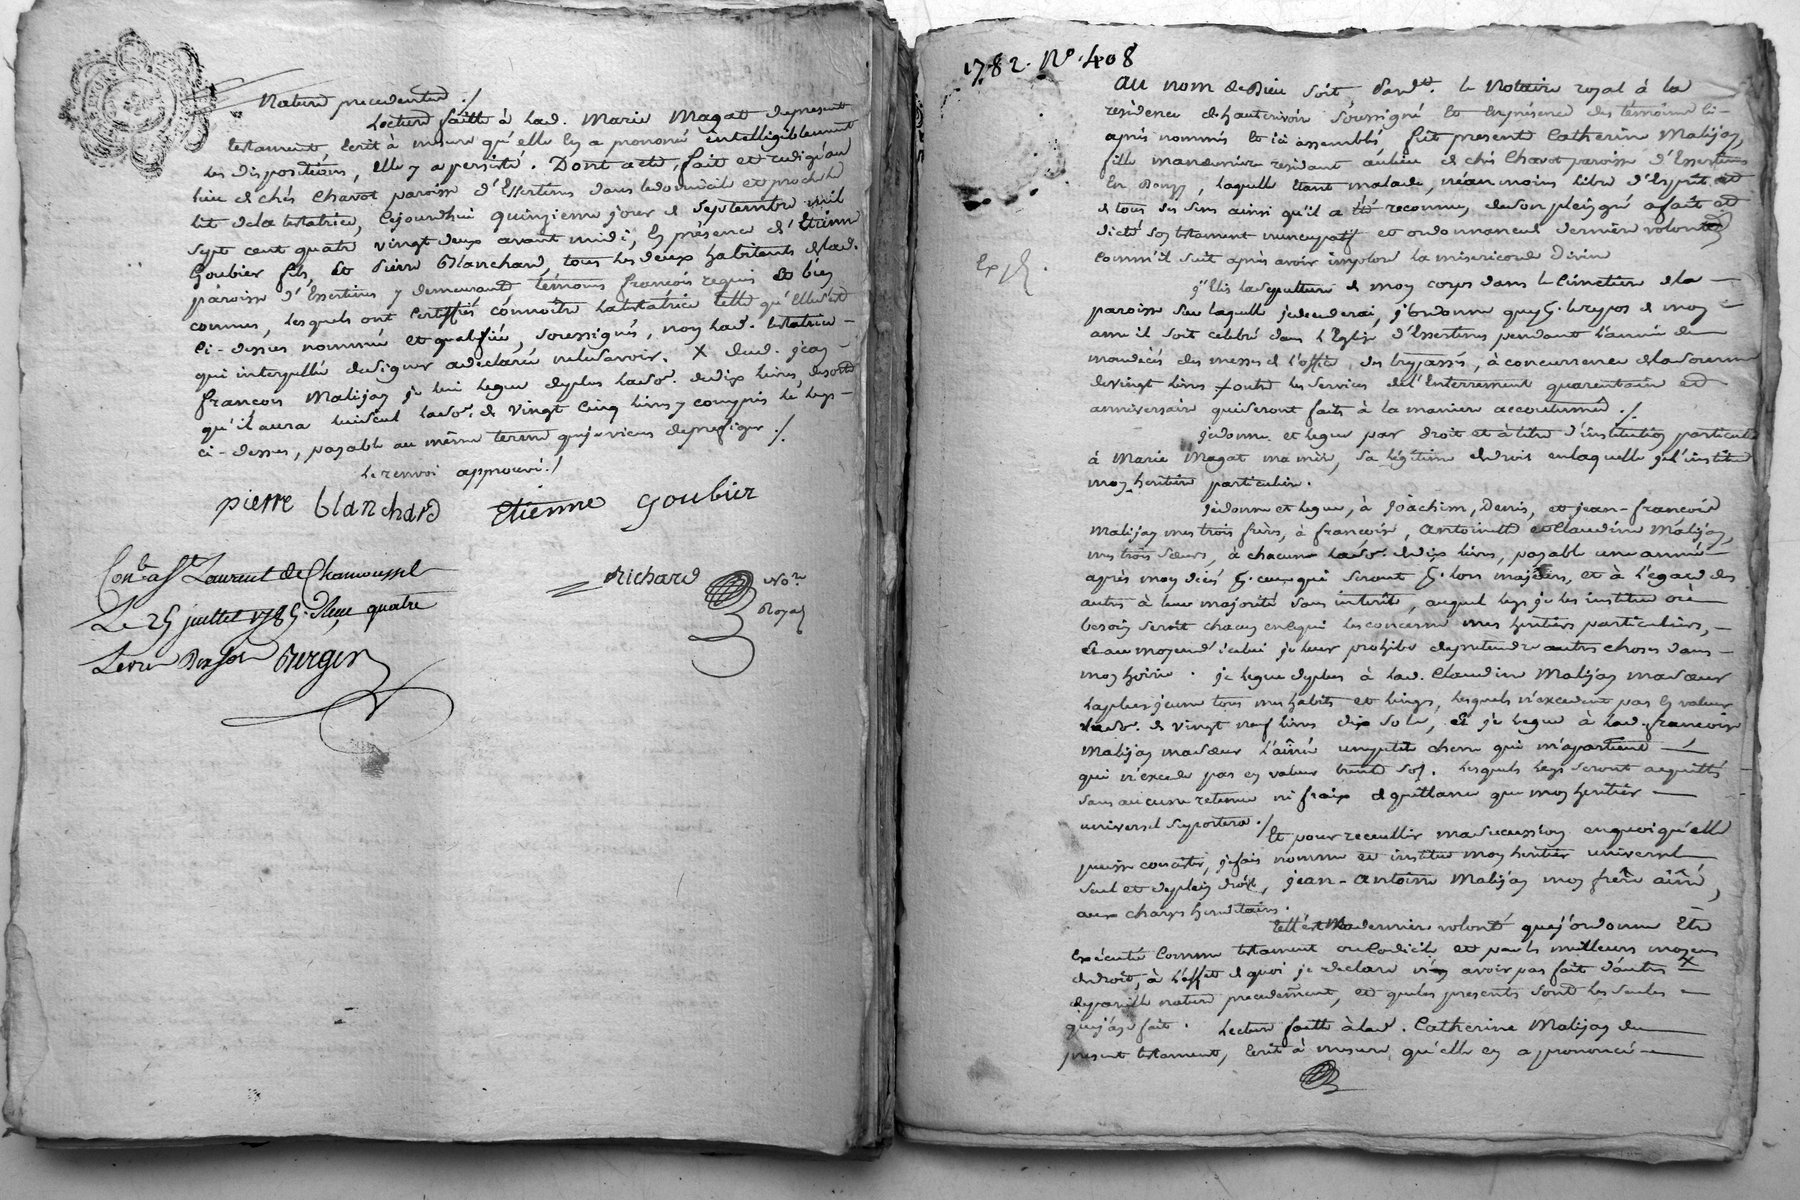 Nature precedentes ./
Lecture faitte à lad. Marie Magat du present
testament ecrit à mesure qu'elle en a prononcé intelligiblement
les dispositions, elle y a persisté. Dont acte, fait et redigé au
lieu de chés Chavot paroisse d'Essertines dans le domicile et proche le
lit de la testatrice, Cejourdhui quinzieme jour de Septembre mil
sept cent quatre vingt deux avant midi, En présence d'Etienne
Goubier fils, Et Pierre Blanchard tous les deux habitants de lad.
paroisse d'Essertines y demeurants témoins françois requis Et bien
connus, lesquels ont certiffiés connoitre la testatrice telle qu'elle est
ci-dessus nommée et qualifiée, soussignés, non lad. testatrice
qui interpellée de signer a declaré ne le savoir. X dud. jean
françois Malijay je lui legue de plus la so.e de dix livres de sorte
qu'il aura lui seul la so.e de vingt cinq livres y compris le legs
ci-dessus, payable au même terme que je viens de prefiger ./
Le renvoi approuvé ./
pierre blanchard Etienne goubier
Richard No.re Royal
Con.lé a St Laurent de Chamousset
Le 25 juillet 1785. Reçu quatre
Livres dix sols Berger
1782. N° 408
Au nom de Dieu soit Pard.t le Notaire royal à la
residence d'hauterivoir soussigné Et En présence des témoins ci-
après nommés Et ici assemblés, fut presente Catherine Malijay
fille manouvriere residant au lieu de chés Chavot paroisse d'Essertines
En Donzy, laquelle étant malade, néanmoins libre d'Esprit et
de tous ses sens ainsi qu'il a été reconnu, de son plein gré a fait et
dicté son testament nuncupatif et ordonnance de derniere volonté
comm'il suit après avoir imploré la misericorde Divine
Exp.
j'Elis la sepulture de mon corps dans le Cimetiere de la
paroisse sur laquelle je decederai, j'ordonne que p. le repos de mon
ame il soit celebré dans l'Eglise d'Essertines pendant l'année de
mon decés des messes de l'office des trepassés, à concurrence de la somme
de vingt livres outre les services de l'Enterrement quarantaine et
anniversaire qui seront faits à la maniere accoutumée ./
je donne et legue par droit et à titre d'institution particuliere
à Marie Magat ma mere, sa légitime de droit en laquelle je l'institue
mon heritiere particuliere.
je donne et legue, à Joachim, Denis, et jean-françois
Malijay mes trois freres, à françoise, Antoinette et Claudine Malijay
mes trois sœurs, à chacun la so.e de dix livres, payable une année
après mon décés p. ceux qui seront p. lors majeurs, et à l'egard des
autres à leur majorité sans interêts, auquel legs je les institue où
besoin seroit chacun en ce qui les concerne mes heritiers particuliers,
Et au moyen d'icelui je leur prohibe de pretendre autres choses dans
mon hoirie. je legue de plus à lad. Claudine Malijay ma sœur
la plus jeune tous mes habits et linges, lesquels n'excedent pas En valeur
la so.e de vingt neuf livres dix sols, Et je legue à lad. françoise
Malijay ma sœur l'aînée un petit chene qui m'apartient
qui n'excede pas en valeur trente sols. lesquels legs seront acquittés
sans aucune retenue ni fraix de quittance que mon heritier
universel suportera ./
Et pour recueillir ma succession en quoi qu'elle
puisse consister, je fais nomme et institue mon heritier universel
seul et de plein droit, jean-Antoine Malijay mon frere aîné,
aux charges hereditaires.
telle est Ma derniere volonté que j'ordonne Etre
Exécutée Comme testament ou Codicile et par les meilleurs moyens
de droit, à l'effet de quoi je declare n'en avoir pas fait d'autres
de pareille nature precedement, et que les presentes sont les seules
que j'aye fait. Lecture faitte à lad. Catherine Malijay du
present testament, Ecrit à mesure qu'elle en a prononcé